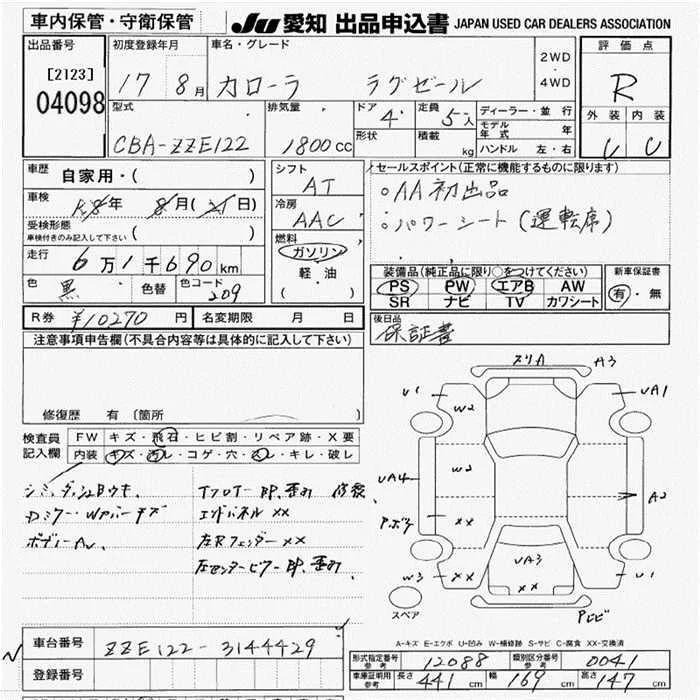 車内保管・守衛保管
JU 愛知 出品申込書 JAPAN USED CAR DEALERS ASSOCIATION
出品番号
[2123]
04098
初度登録年月
17 8月
車名・グレード
カローラ ラグゼール
2WD
4WD
評価点
R
外装 内装
U C
型式
CBA-ZZE122
排気量
1800cc
ドア
4
形状
定員
5人
積載
kg
ディーラー・並行
モデル年式 年
ハンドル 左・右
車歴
自家用・( )
車検
年 8月(21日)
受検形態
車検付きのみ記入して下さい ( )
走行
6万1千690km
色
黒
色替
色コード
209
シフト
AT
冷房
AAC
燃料
ガソリン
軽・油
( )
セールスポイント(正常に機能するものに限ります)
○AA初出品
○パワーシート(運転席)
装備品(純正品に限り○をつけてください)
PS PW エアB AW
SR ナビ TV カワシート
新車保証書
有・無
R券 ¥10270円
名変期限 月 日
後日品
保証書
注意事項申告欄(不具合内容等は具体的に記入して下さい)
修復歴 有〔箇所
検査員記入欄
FW キズ・飛石・ヒビ割・リペア跡・X要
内装 キズ・汚レ・コゲ・穴・スレ・キレ・破レ
シミ、ダッシュBウキ、
Dミラー・WPバーキズ
ボディーAw、
エンドパネル ××
左Rフェンダー××
左センターピラー
スリA
A3
U1
W2
UA1
W2
UA4
A2
P.ボヅ
××
UA3
W3
××
××
U1
Pビビ
スペア
A-キズ E-エクボ U-凹み W-補修跡 S-サビ C-腐食 XX-交換済
車台番号
ZZE122-3144429
登録番号
型式指定番号 参考
12088
類別区分番号 参考
0041
車庫証明用 参考
長さ 441cm
幅 169cm
高さ 147cm